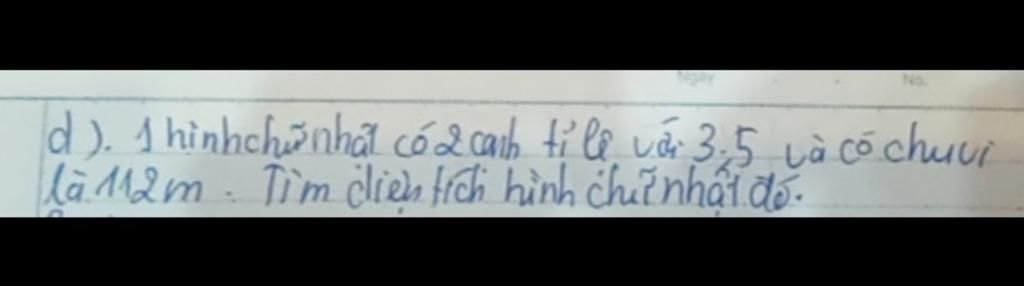 Ngày No.
d). 1 hình chữ nhật có 2 cạnh tỉ lệ với 3;5 và có chu vi
là 112m. Tìm diện tích hình chữ nhật đó.